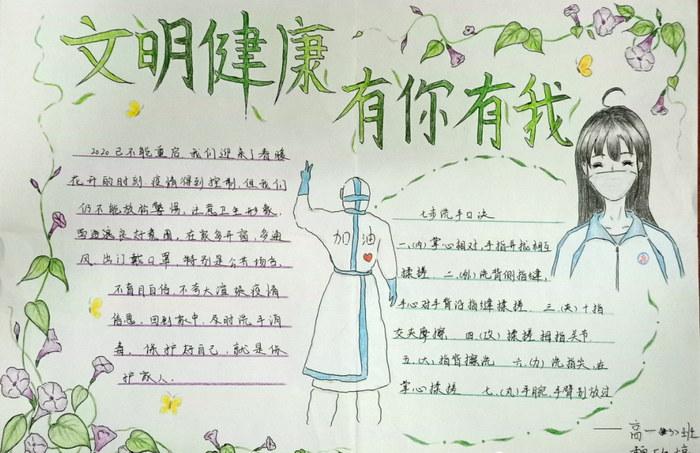 文明健康
有你有我
2020已不能重启,我们迎来了春暖
花开的时刻,疫情得到控制,但我们
仍不能放松警惕,注意卫生形象,
营造良好氛围,在家多开窗,多通
风,出门戴口罩,特别是公共场合,
不盲目自信,不夸大渲染疫情
信息,回到家中,及时洗手消
毒,保护好自己,就是保
护家人.
加油
七步洗手口决
一.(内)掌心相对,手指并拢相互
揉搓 二.(外)洗背侧指缝,
手心对手背沿指缝揉搓 三.(夹)十指
交叉摩擦. 四.(攻)揉搓拇指关节.
五.(大)指背擦洗 六.(力)洗指尖,在
掌心揉搓 七.(丸)手腕,手臂别放过
——高一 班